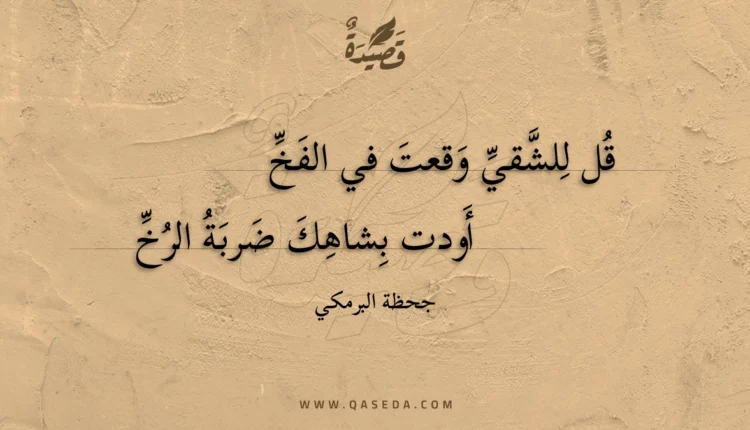 قَصِيدَةٌ
قُل لِلشَّقيِّ وَقعتَ في الفَخِّ
أَودت بِشاهِكَ ضَربَةُ الرُخِّ
جحظة البرمكي
WWW.QASEDA.COM